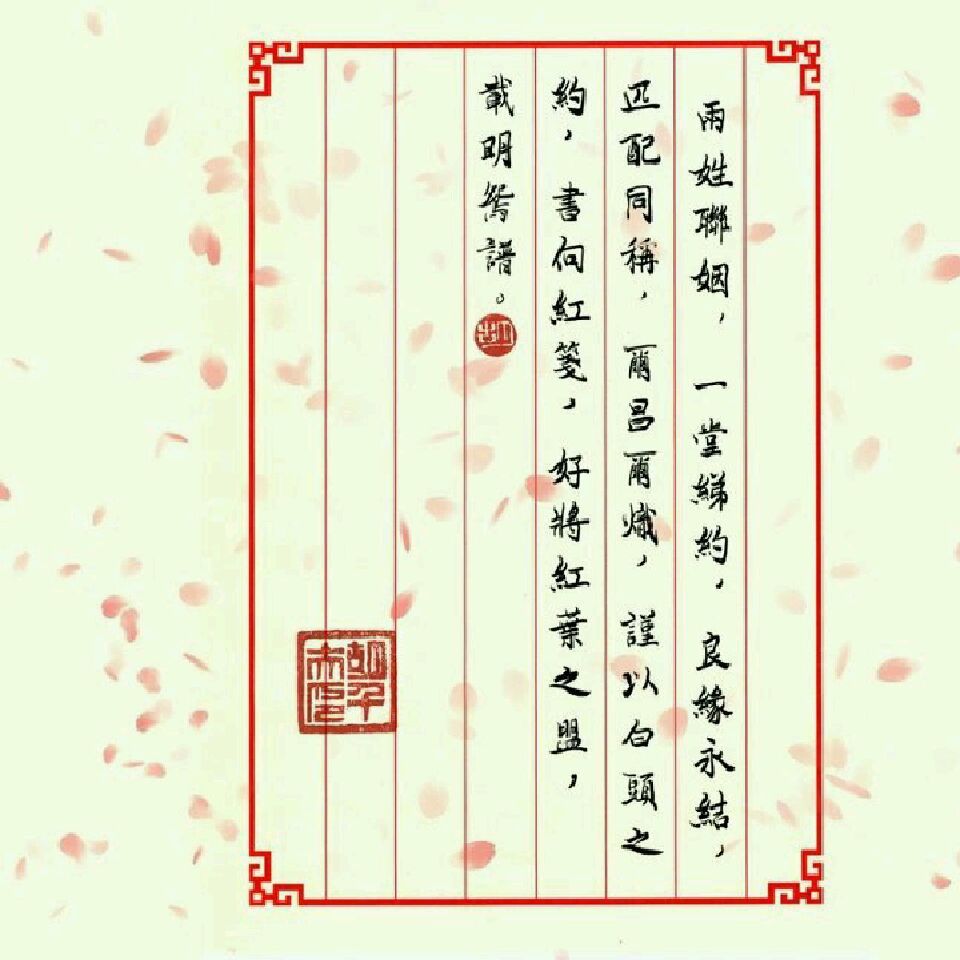 兩姓聯姻，一堂締約，良緣永結，
匹配同稱，爾昌爾熾，謹以白頭之
約，書向紅箋，好將紅葉之盟，
載明鴛譜。